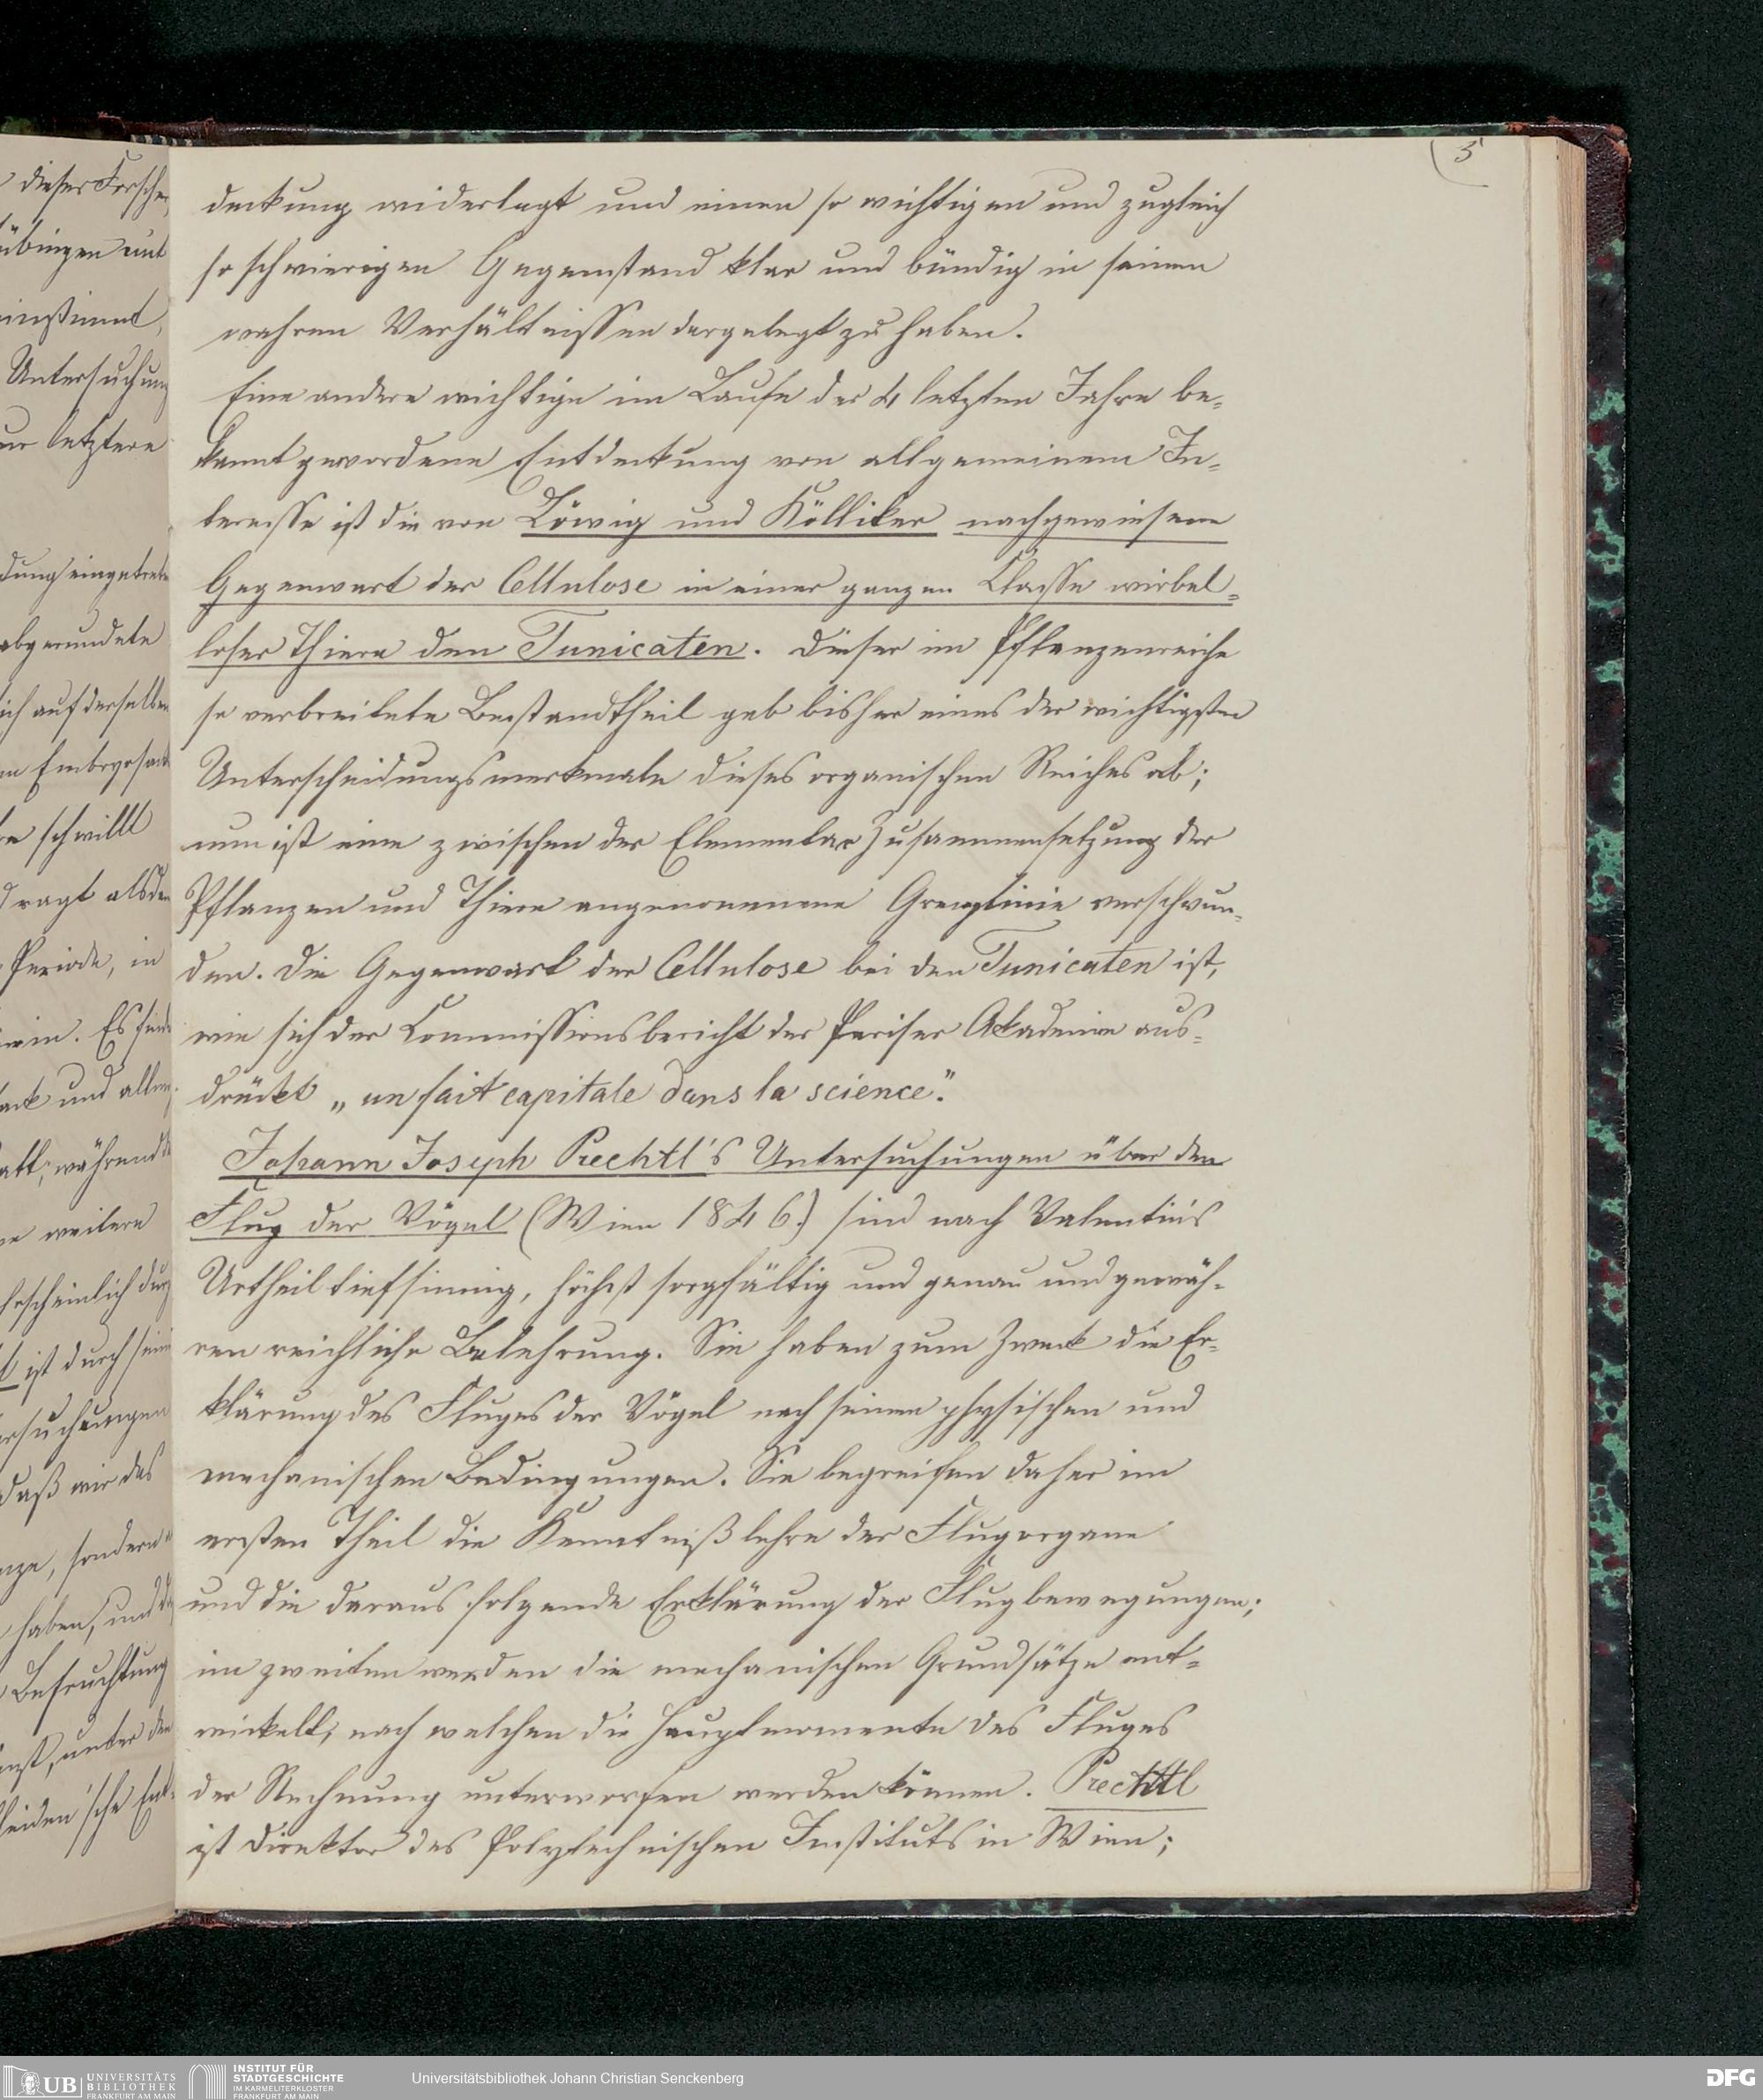 5
deckung widerlegt und einen so wichtigen und zugleich
so schwierigen Gegenstand klar und bündig in seinen
wahren Verhältnissen dargelegt zu haben.
Eine andere wichtige im Laufe der 4 letzten Jahre be-
kannt gewordene Entdeckung von allgemeinem In-
teresse ist die von Löwig und Kölliker nachgewiesene
Gegenwart der Cellulose in einer ganzen Classe wirbel-
loser Thiere den Tunicaten. Dieser im Pflanzenreiche
so verbreitete Bestandtheil gab bisher eines der wichtigsten
Unterscheidungsmerkmale dieses organischen Reiches ab;
nun ist eine zwischen der Elementar Zusammensetzung der
Pflanzen und Thiere angenommene Grenzlinie verschwun-
den. Die Gegenwart der Cellulose bei den Tunicaten ist,
wie sich der Commissionsbericht der Pariser Akademie aus-
drückt „un fait capitale dans la science".
Johann Joseph Prechtl's Untersuchungen über den
Flug der Vögel (Wien 1846.) sind nach Valentin's
Urtheil tiefsinnig, höchst sorgfältig und genau und gewäh-
ren reichliche Belehrung. Sie haben zum Zweck die Er-
klärung des Fluges der Vögel nach seinen physischen und
mechanischen Bedingungen. Sie begreifen daher im
ersten Theil die Kenntnißlehre der Flugorgane
und die daraus folgende Erklärung der Flugbewegungen;
im zweiten werden die mechanischen Grundsätze ent-
wickelt, nach welchen die Hauptmomente des Fluges
der Rechnung unterworfen werden können. Prechtl
ist Direktor des Polytechnischen Instituts in Wien;
dieser Forscher
übingen mit
Untersuchung
letztere
dung eingetrete
abgerundete
ich auf derselben
schwillt
ragt als
Periode, in
Es sind
und
während
weitere
ist durch seine
daß wir das
sondern
haben, und
Befruchtung
unter den
UB UNIVERSITÄTS
BIBLIOTHEK
FRANKFURT AM MAIN
INSTITUT FÜR
STADTGESCHICHTE
IM KARMELITERKLOSTER
FRANKFURT AM MAIN
Universitätsbibliothek Johann Christian Senckenberg
DFG